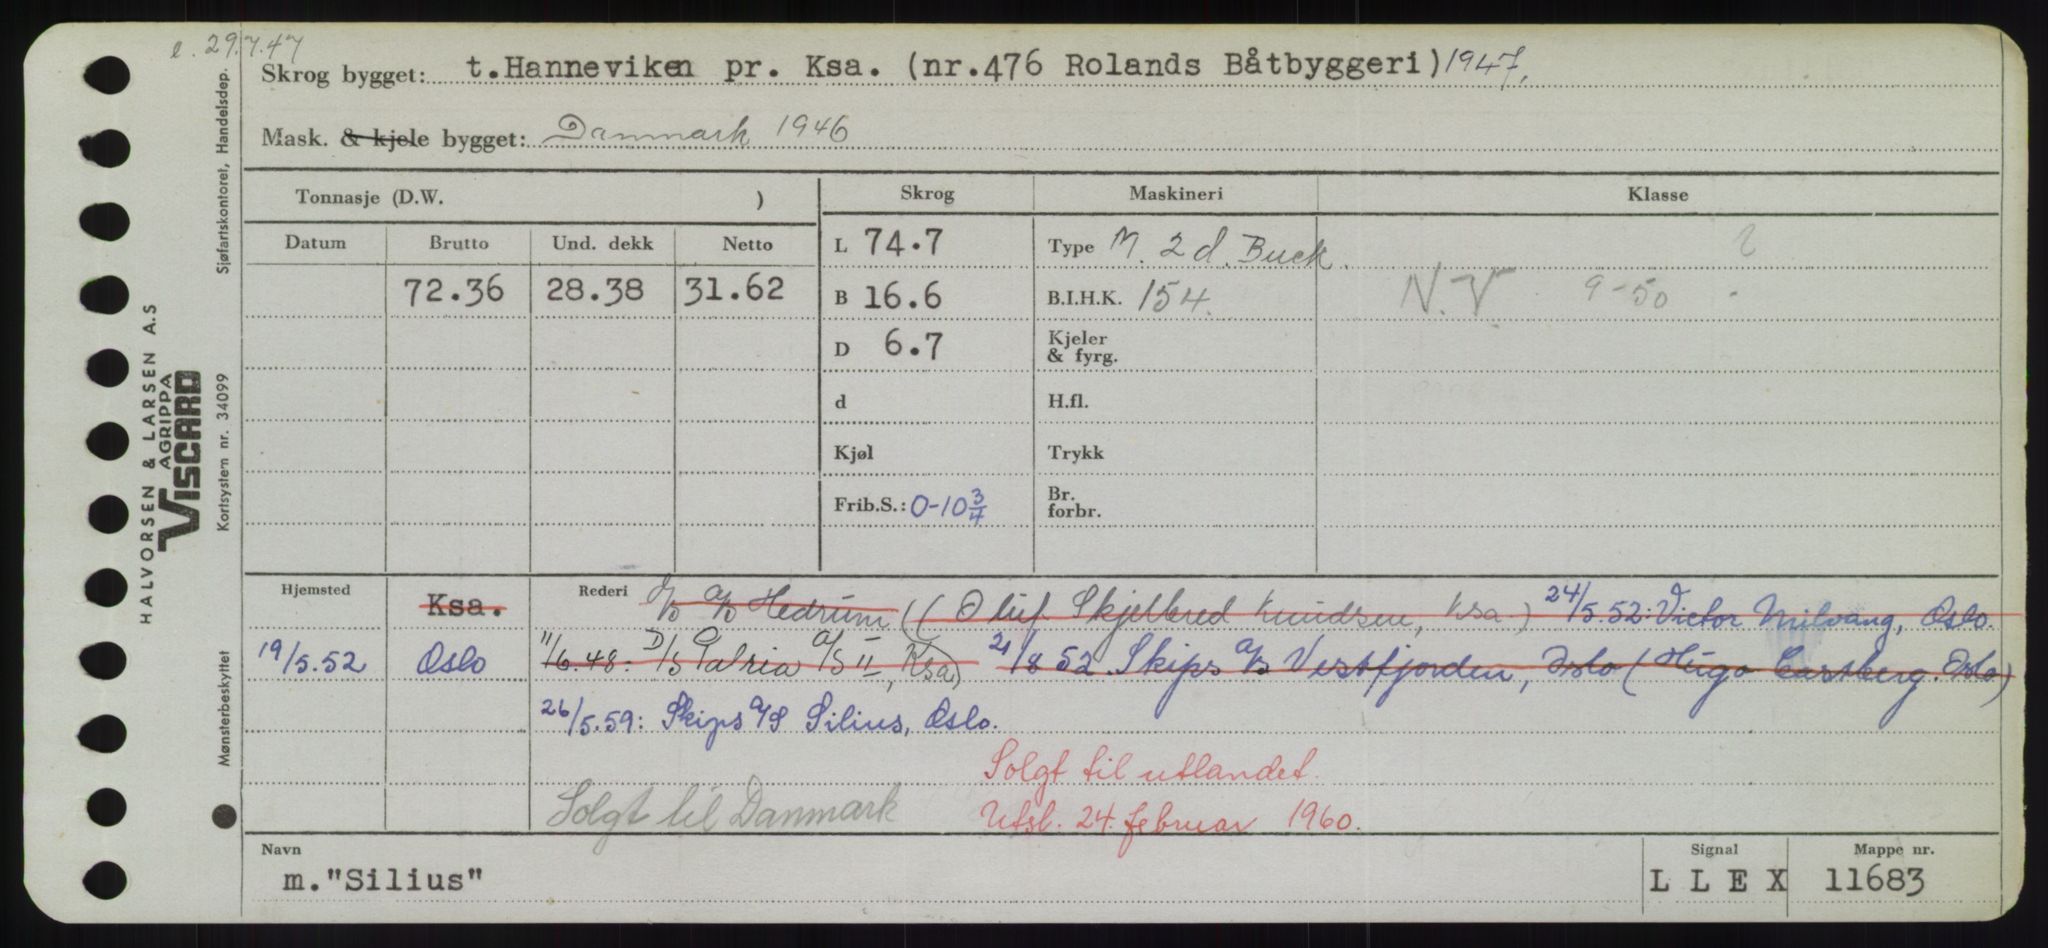 e. 29.7.47
Skrog bygget: t.Hanneviken pr. Ksa. (nr.476 Rolands Båtbyggeri) 1947.
Mask. & kjele bygget: Danmark 1946
Tonnasje (D.W. )
Skrog
Maskineri
Klasse
Datum
Brutto
Und. dekk
Netto
L 74.7
Type M. 2 d. Buck.
72.36
28.38
31.62
B 16.6
B.I.H.K. 154.
N.V. 9-50
D 6.7
Kjeler
& fyrg.
d
H.fl.
Kjøl
Trykk
Frib.S.: 0-10 3/4
Br.
forbr.
Hjemsted
Ksa.
Rederi
I/S A/S Hedrum (Oluf Skjelbred Knudsen, Ksa.) 24/5.52: Victor Milvang, Oslo.
19/5.52 Oslo
11/6.48: D/S Patria A/S II, Ksa) 21/8 52. Skips A/S Vestfjorden, Oslo (Hugo Castberg. Oslo)
26/5.59: Skips A/S Silius, Oslo.
Solgt til utlandet.
Solgt til Danmark
Utsl. 24. februar 1960.
Navn
m."Silius"
Signal
L L E X
Mappe nr.
11683
HALVORSEN & LARSEN A.S
AGRIPPA
VISCARD
Mønsterbeskyttet
Kortsystem nr. 34099
Sjøfartskontoret, Handelsdep.